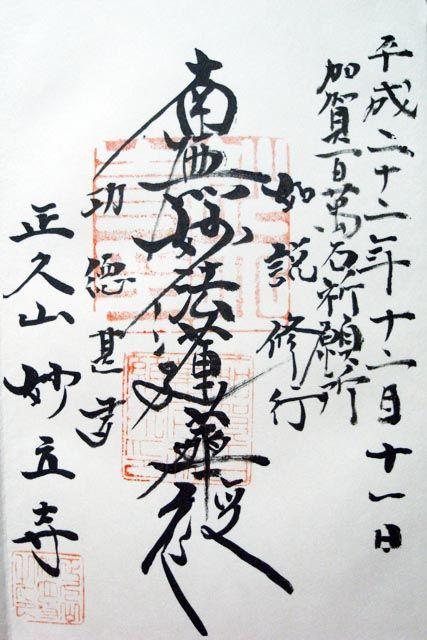 平成二十二年十二月十一日
加賀百萬石祈願所
如説修行
南無妙法蓮華經
功徳甚多
正久山妙立寺